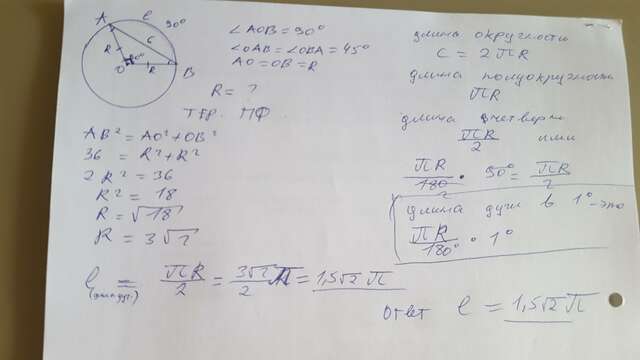 A
l
90°
6
R
O
90°
R
B
∠AOB = 90°
∠OAB = ∠OBA = 45°
AO = OB = R
R = ?
теор. Пф.
AB² = AO² + OB²
36 = R² + R²
2R² = 36
R² = 18
R = √18
R = 3√2
l = πR/2 = 3√2/2 π = 1,5√2 π
длина окружности
C = 2πR
длина полуокружности
πR
длина четверти
πR/2 или
πR/180 · 90° = πR/2
длина дуги в 1° - это
πR/180° · 1°
Ответ l = 1,5√2 π